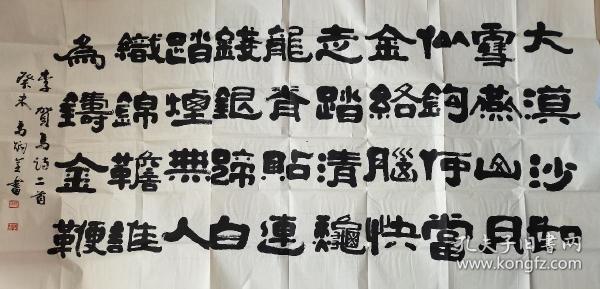 大漠沙如
雪燕山月
似鉤何當
金絡腦快
走踏清龝
龍脊貼連
錢銀蹄白
踏煙無人
織錦韂誰
為鑄金鞭
李賀馬詩二首
癸未 書
孔夫子旧书网
www.kongfz.com